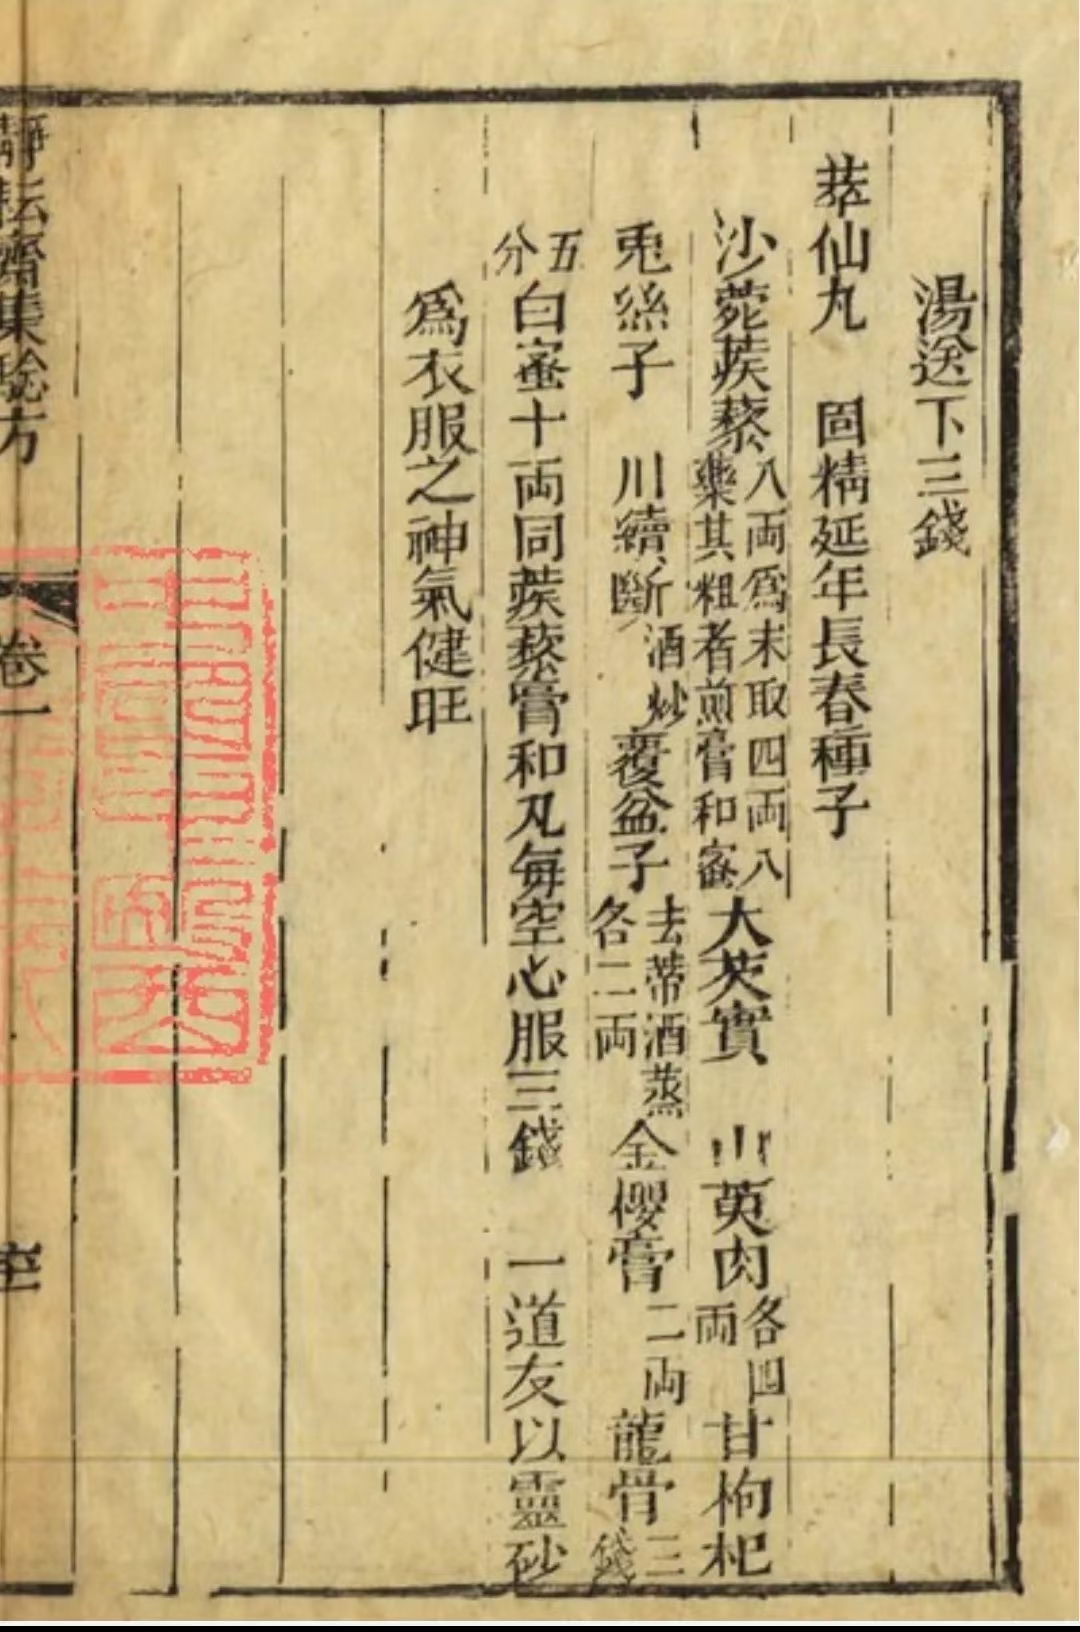 湯送下三錢
萃仙丸　固精延年長春種子
沙菀蒺藜八両爲末取四両入藥其粗者煎膏和蜜大芡實　山萸肉各四両甘枸杞
兎絲子　川續斷酒炒覆盆子去蒂酒蒸各二両金櫻膏二両龍骨三錢
五分白蜜十両同蒺藜膏和丸每空心服三錢　一道友以靈砂
爲衣服之神氣健旺
靜耘齋集驗方
卷一